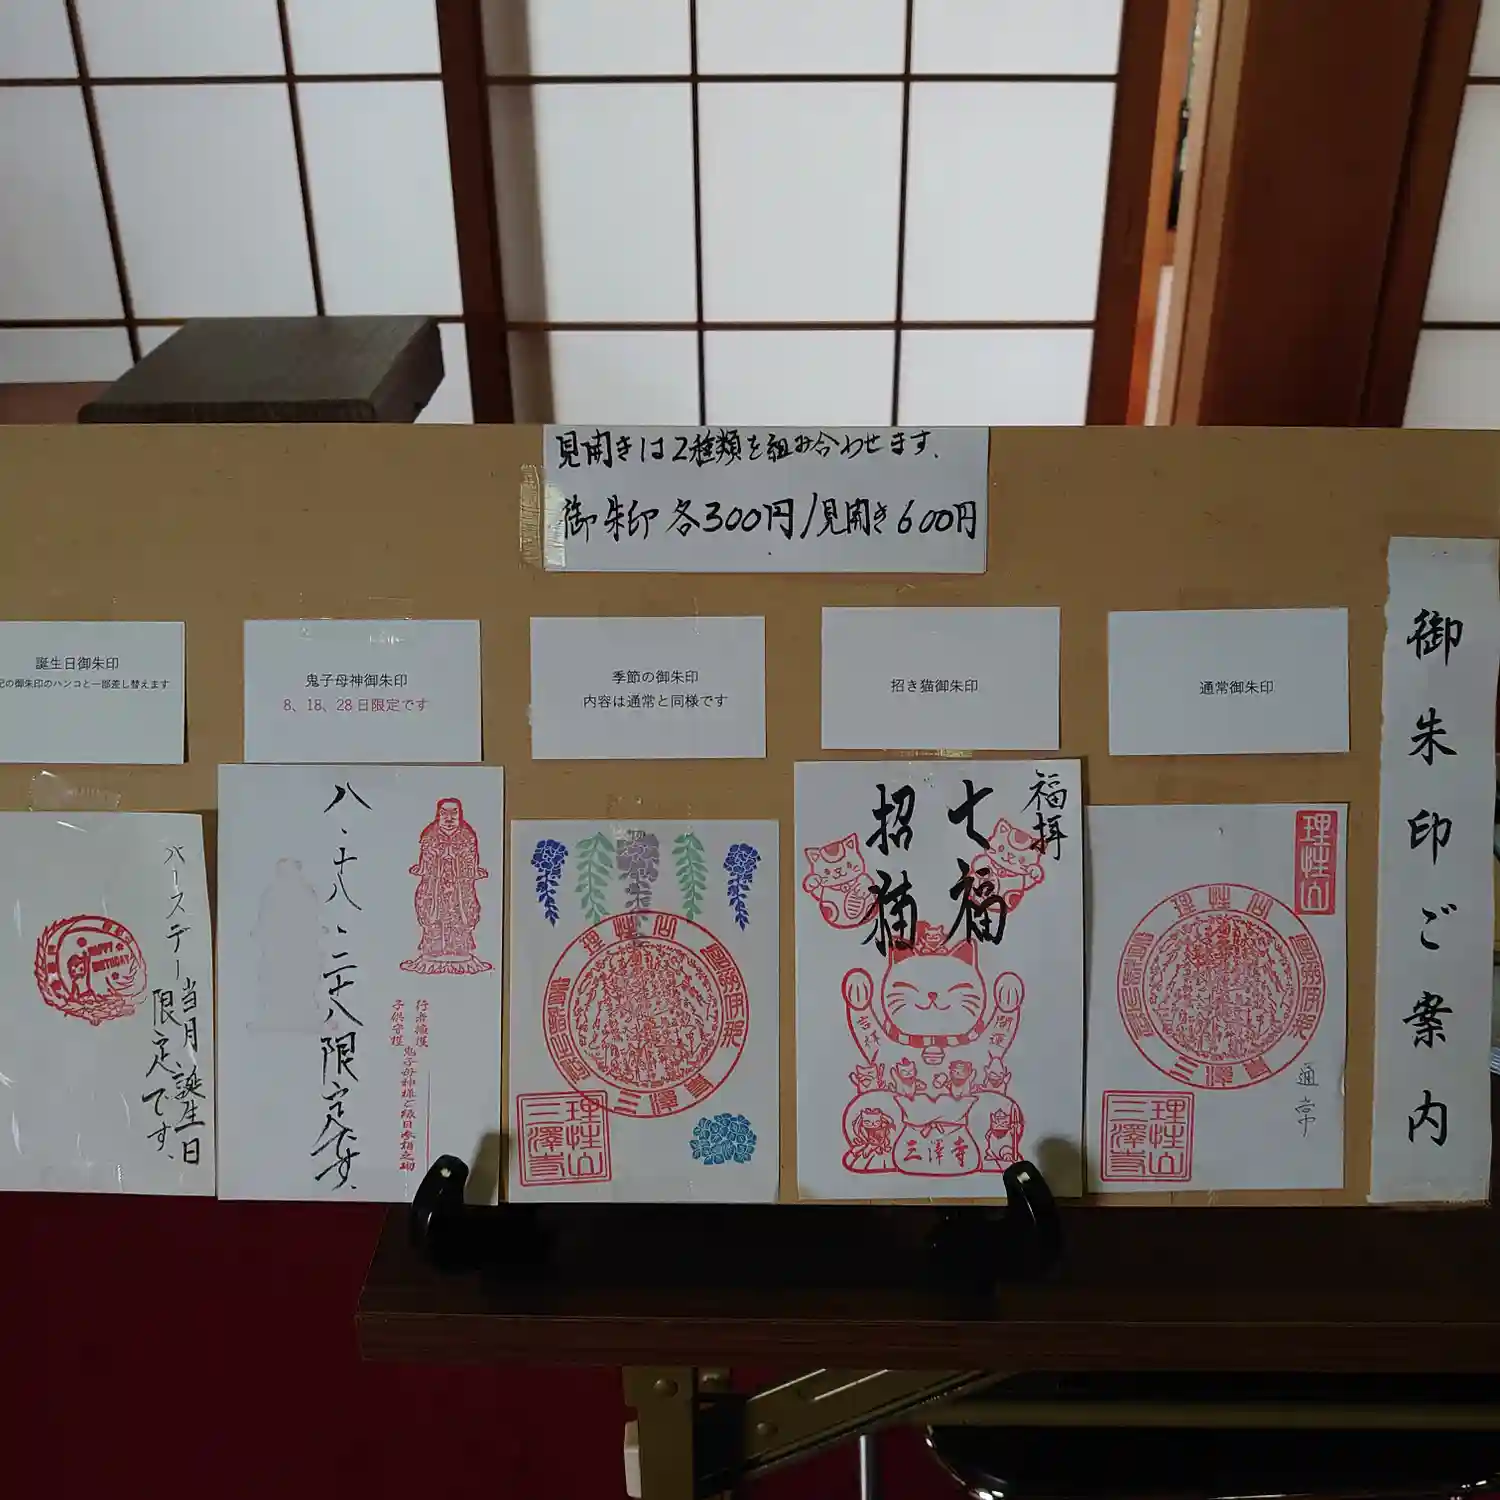 見開きは2種類を組み合わせます.
御朱印 各300円/見開き600円
御朱印ご案内
通常御朱印
理性山
理性山
三澤寺
通常
理性山
三澤寺
招き猫御朱印
福拝
七福
招猫
吉祥
開運
三澤寺
季節の御朱印
内容は通常と同様です
理性山
三澤寺
理性山
三澤寺
鬼子母神御朱印
8、18、28日限定です
八、十八、二十八限定です、
行者擁護
子供守護
バースデー当月、誕生日
限定です、
誕生日御朱印
記の御朱印のハンコと一部差し替えます
HAPPY
BIRTHDAY